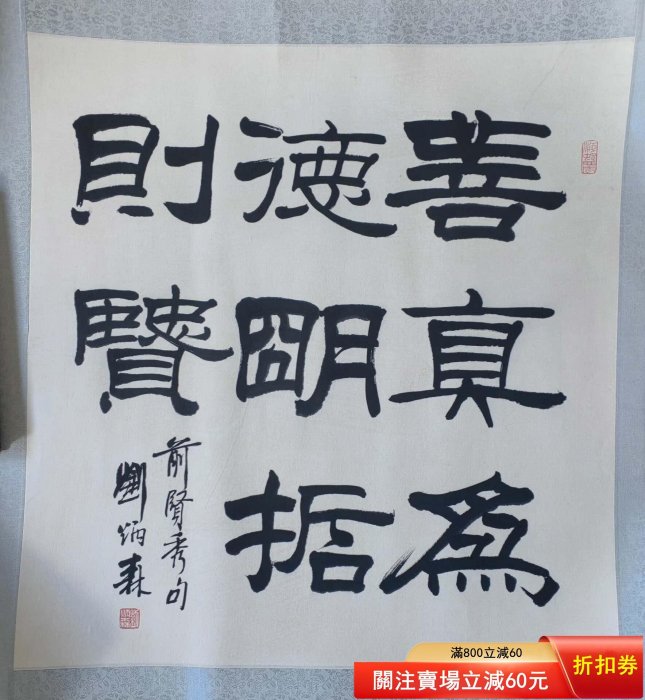 善真為
德朙哲
則賢
前賢秀句
劉炳森
滿800立減60
關注賣場立減60元
折扣券